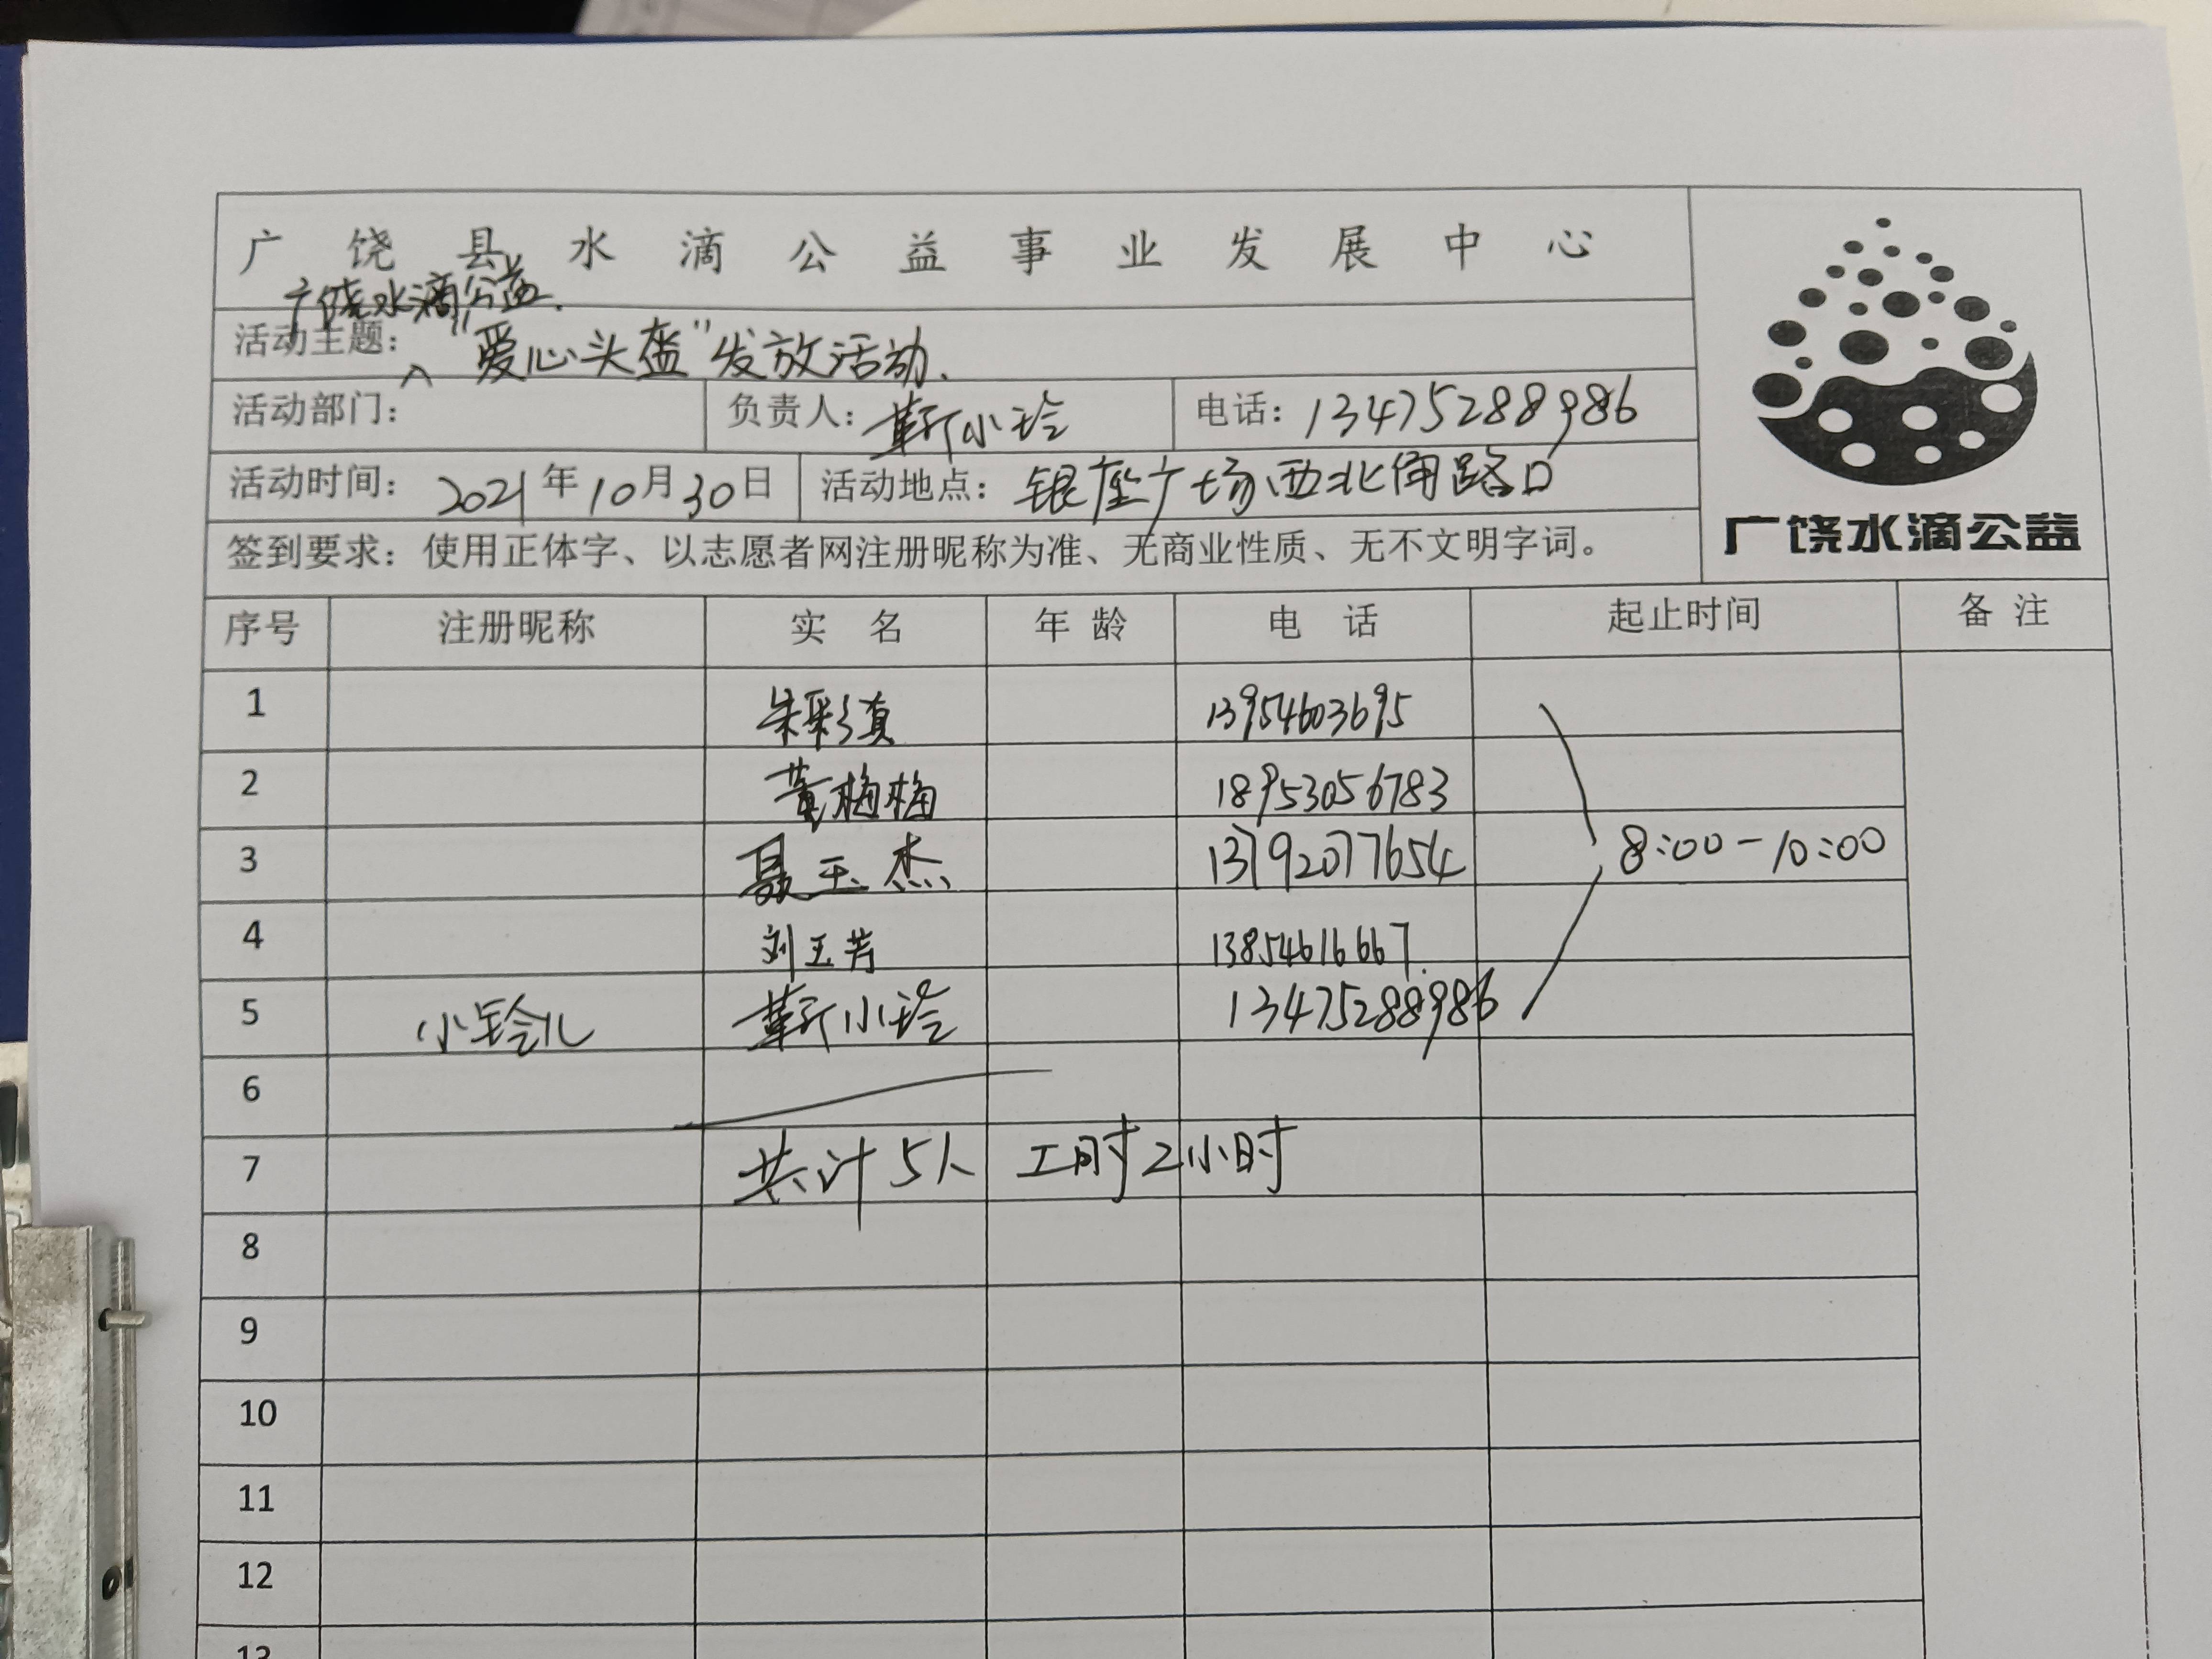 广饶县水滴公益事业发展中心
广饶水滴公益
活动主题：“爱心头盔”发放活动.
活动部门： 负责人：靳小玲 电话：13475288986
活动时间：2021年10月30日 活动地点：银座广场西北角路口
签到要求：使用正体字、以志愿者网注册昵称为准、无商业性质、无不文明字词。
广饶水滴公益
序号 注册昵称 实 名 年 龄 电 话 起止时间 备 注
1 朱彩真 13954603695
2 黄梅梅 18953056783
3 聂玉杰 13792077654 8:00-10:00
4 刘玉芳 13854616667.
5 小玲儿 靳小玲 13475288986
6
7 共计5人 工时2小时
8
9
10
11
12
13